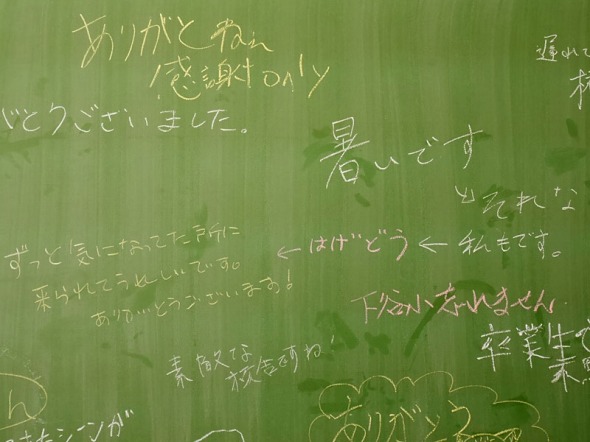 ありがとねぇ
感謝only
遅れて
がとうございました。
暑いです
それな
ずっと気になってた所に
来られてうれしいです。
ありがとうございます!
← はげどう ← 私もです。
下谷小忘れません
素敵な
校舎ですね!
卒業生で
ん
シーンが
ありがとう